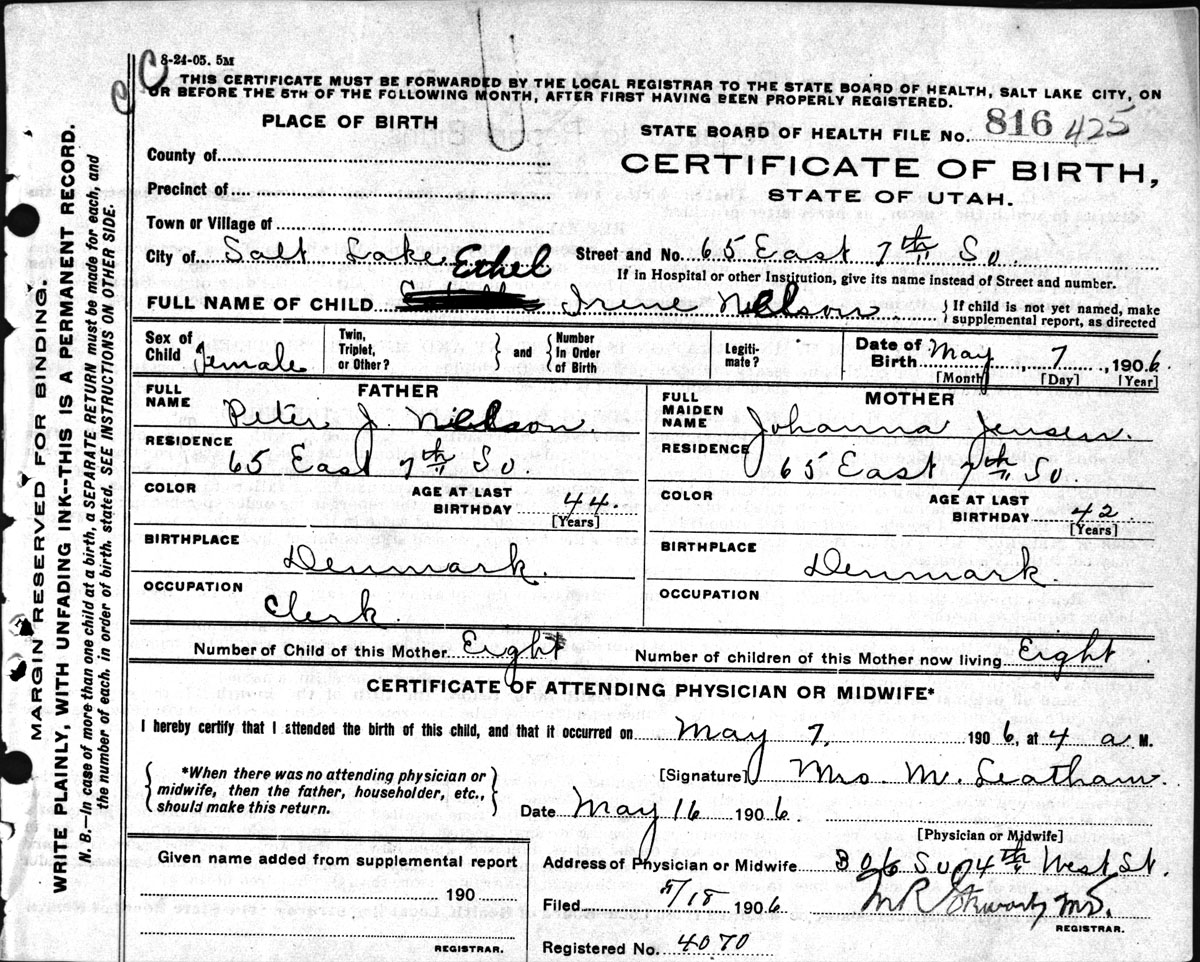 8-24-05. 5M
THIS CERTIFICATE MUST BE FORWARDED BY THE LOCAL REGISTRAR TO THE STATE BOARD OF HEALTH, SALT LAKE CITY, ON
OR BEFORE THE 5TH OF THE FOLLOWING MONTH, AFTER FIRST HAVING BEEN PROPERLY REGISTERED.
PLACE OF BIRTH
STATE BOARD OF HEALTH FILE No. 816 425
County of
CERTIFICATE OF BIRTH,
Precinct of
STATE OF UTAH.
Town or Village of
City of Salt Lake Street and No. 65 East 7th So.
If in Hospital or other Institution, give its name instead of Street and number.
Ethel
FULL NAME OF CHILD Irene Nelson { If child is not yet named, make
supplemental report, as directed
Sex of Child Female
Twin, Triplet, or Other? } and { Number in Order of Birth
Legiti-mate?
Date of Birth May 7, 1906
[Month] [Day] [Year]
FATHER
FULL NAME Peter J. Nelson.
RESIDENCE 65 East 7th So
COLOR AGE AT LAST BIRTHDAY 44. [Years]
BIRTHPLACE Denmark.
OCCUPATION Clerk.
MOTHER
FULL MAIDEN NAME Johanna Jensen.
RESIDENCE 65 East 7th So.
COLOR AGE AT LAST BIRTHDAY 42 [Years]
BIRTHPLACE Denmark.
OCCUPATION
Number of Child of this Mother Eight Number of children of this Mother now living Eight
CERTIFICATE OF ATTENDING PHYSICIAN OR MIDWIFE*
I hereby certify that I attended the birth of this child, and that it occurred on May 7, 1906, at 4 a M.
{ *When there was no attending physician or
midwife, then the father, householder, etc.,
should make this return. }
[Signature] Mrs. M. Leatham.
Date May 16 1906.
[Physician or Midwife]
Given name added from supplemental report
190
REGISTRAR.
REGISTRAR.
Address of Physician or Midwife 306 So 4th West St.
Filed 5/18 1906.
M.D.
REGISTRAR.
Registered No. 4070
MARGIN RESERVED FOR BINDING.
WRITE PLAINLY, WITH UNFADING INK--THIS IS A PERMANENT RECORD.
N. B.--In case of more than one child at a birth, a SEPARATE RETURN must be made for each, and
the number of each, in order of birth, stated. SEE INSTRUCTIONS ON OTHER SIDE.